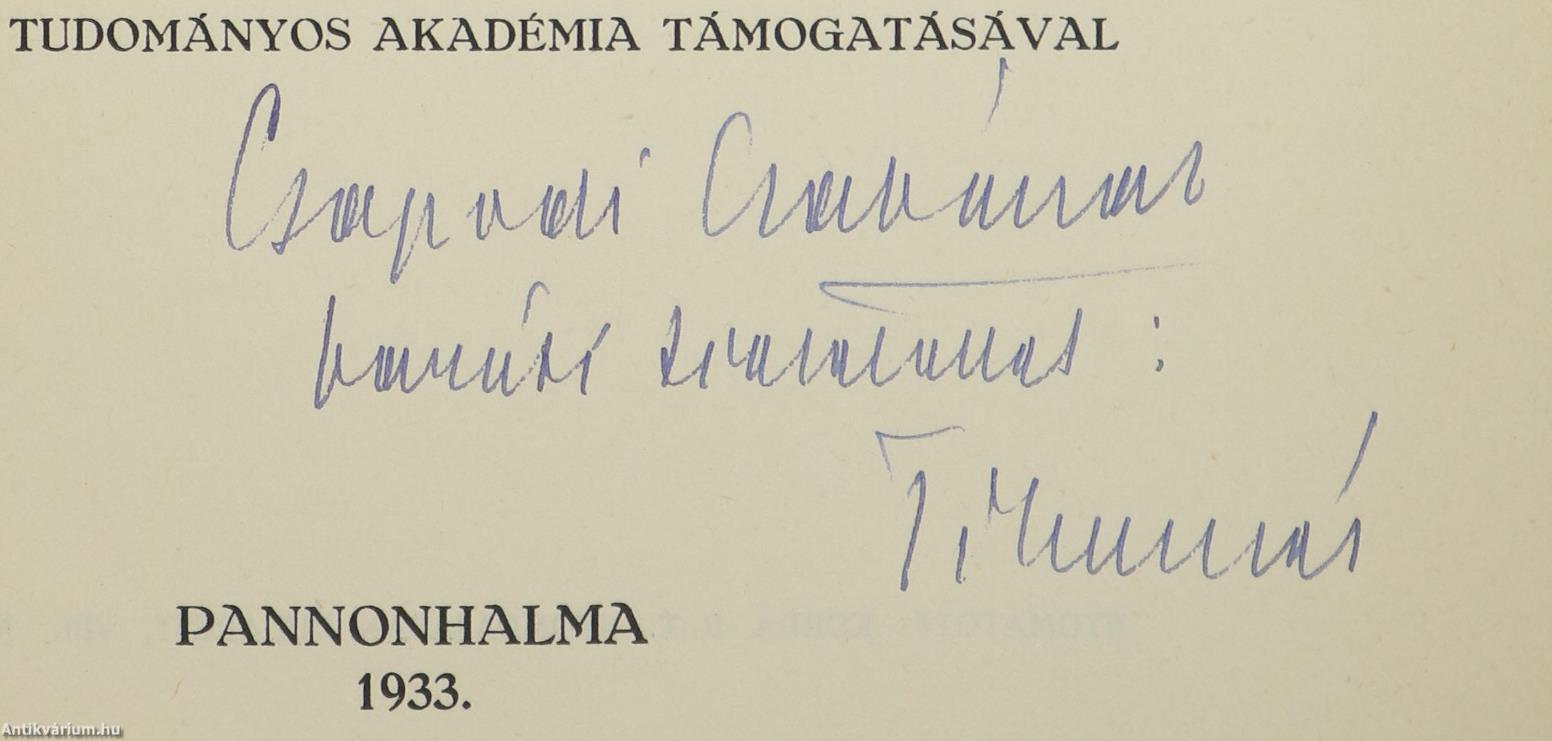 TUDOMÁNYOS AKADÉMIA TÁMOGATÁSÁVAL
Csapodi Csabának
baráti szeretettel :
PANNONHALMA
1933.
Antikvárium.hu